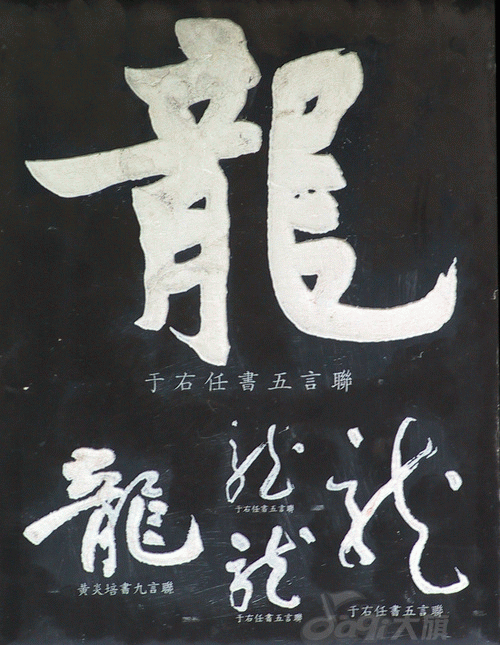 龍
于右任書五言聯
龍
黃炎培書九言聯
龍
于右任書五言聯
龍
于右任書五言聯
龍
于右任書五言聯
daqi大旗